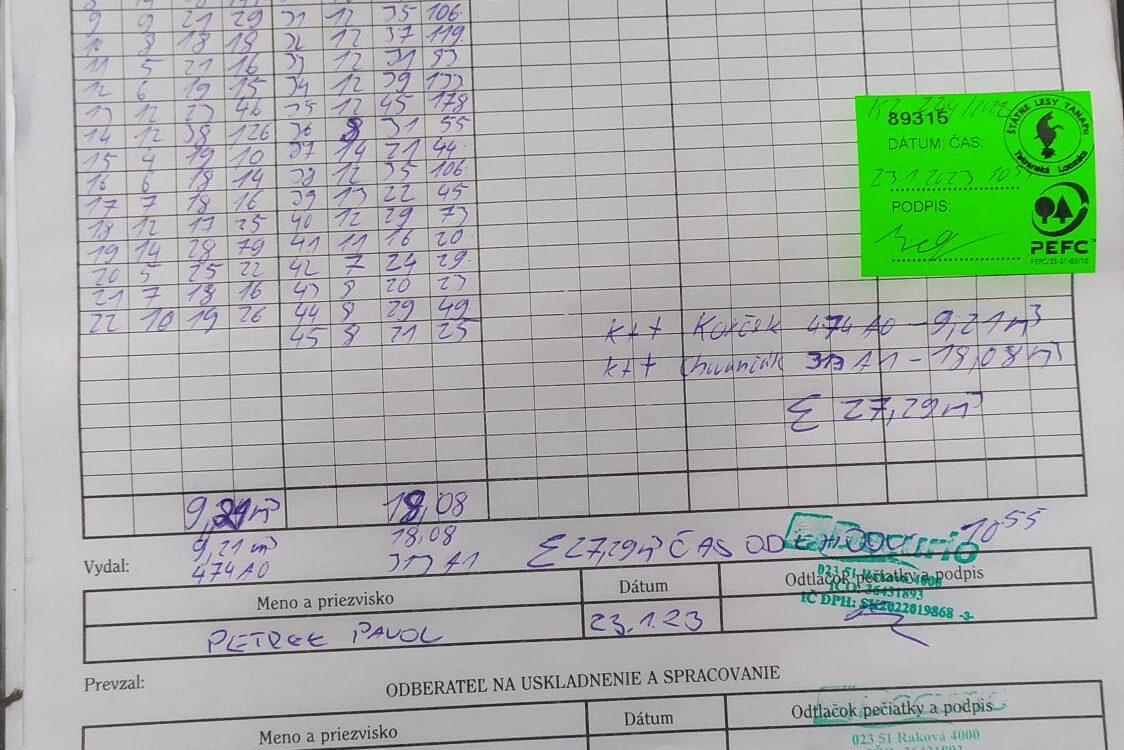 9 9 21 29 31 12 35 106
10 8 18 18 32 12 37 119
11 5 21 16 33 12 31 83
12 6 19 15 34 12 39 133
13 12 23 46 35 12 45 178
14 12 38 126 36 8 31 55
15 4 19 10 37 14 21 44
16 6 18 14 38 12 35 106
17 7 18 16 39 13 22 45
18 12 17 25 40 12 29 73
19 14 28 79 41 11 16 20
20 5 25 22 42 7 24 29
21 7 18 16 43 8 20 23
22 10 19 26 44 8 29 49
45 8 21 25
89315
ŠTÁTNE LESY TANAPU
Tatranská Lomnica
DÁTUM, ČAS:
23.1.2023 10
PODPIS:
PEFC
PEFC/23-21-03/10
ktt Korček 474 A0 - 9,21 m³
ktt 313 A1 - 18,08 m³
Σ 27,29 m³
9,21 m³ 18,08
9,21 m³ 18,08
474 A0 313 A1
Σ 27,29 m³ ČAS ODCHODU 10 55
Vydal:
Meno a priezvisko Dátum Odtlačok pečiatky a podpis
023 51 Raková 4000
IČO: 36431893
IČ DPH: SK2022019868 -3-
PAVOL 23.1.23
Prevzal: ODBERATEĽ NA USKLADNENIE A SPRACOVANIE
Meno a priezvisko Dátum Odtlačok pečiatky a podpis
023 51 Raková 4000